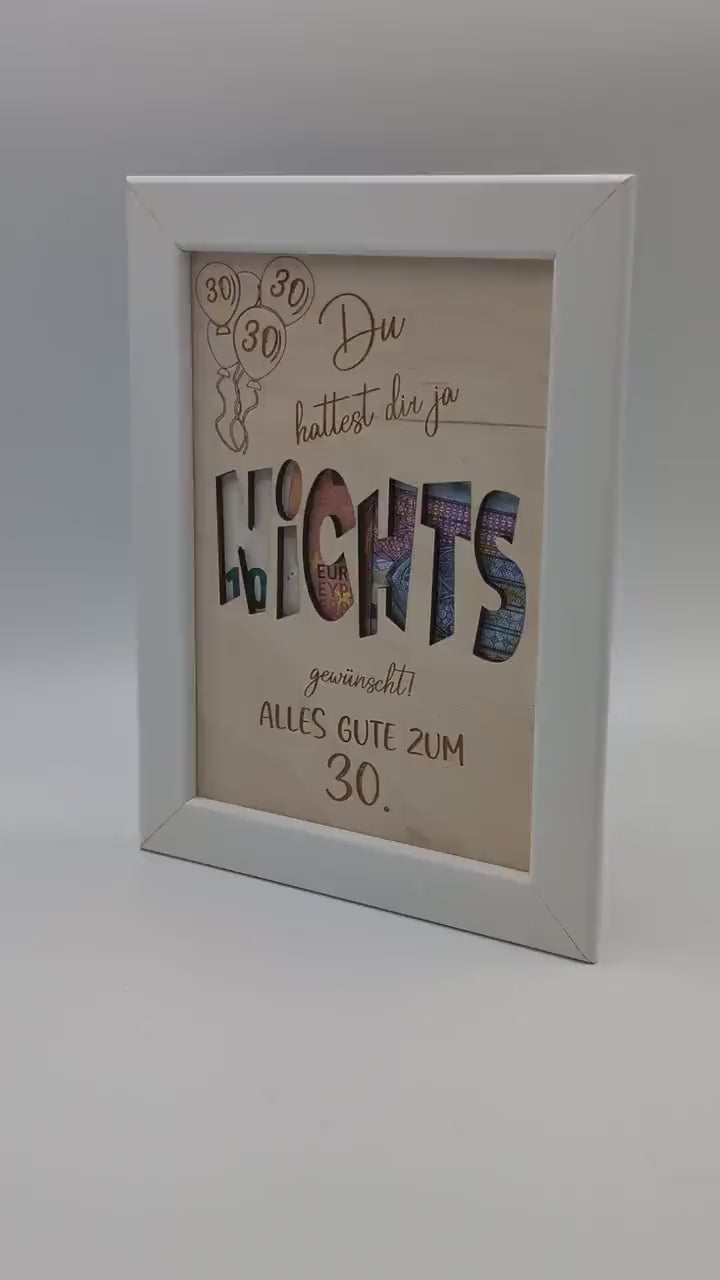 30 30
30
Du
hattest dir ja
NiCHTS
10
EUR
EYP
gewünscht!
ALLES GUTE ZUM
30.